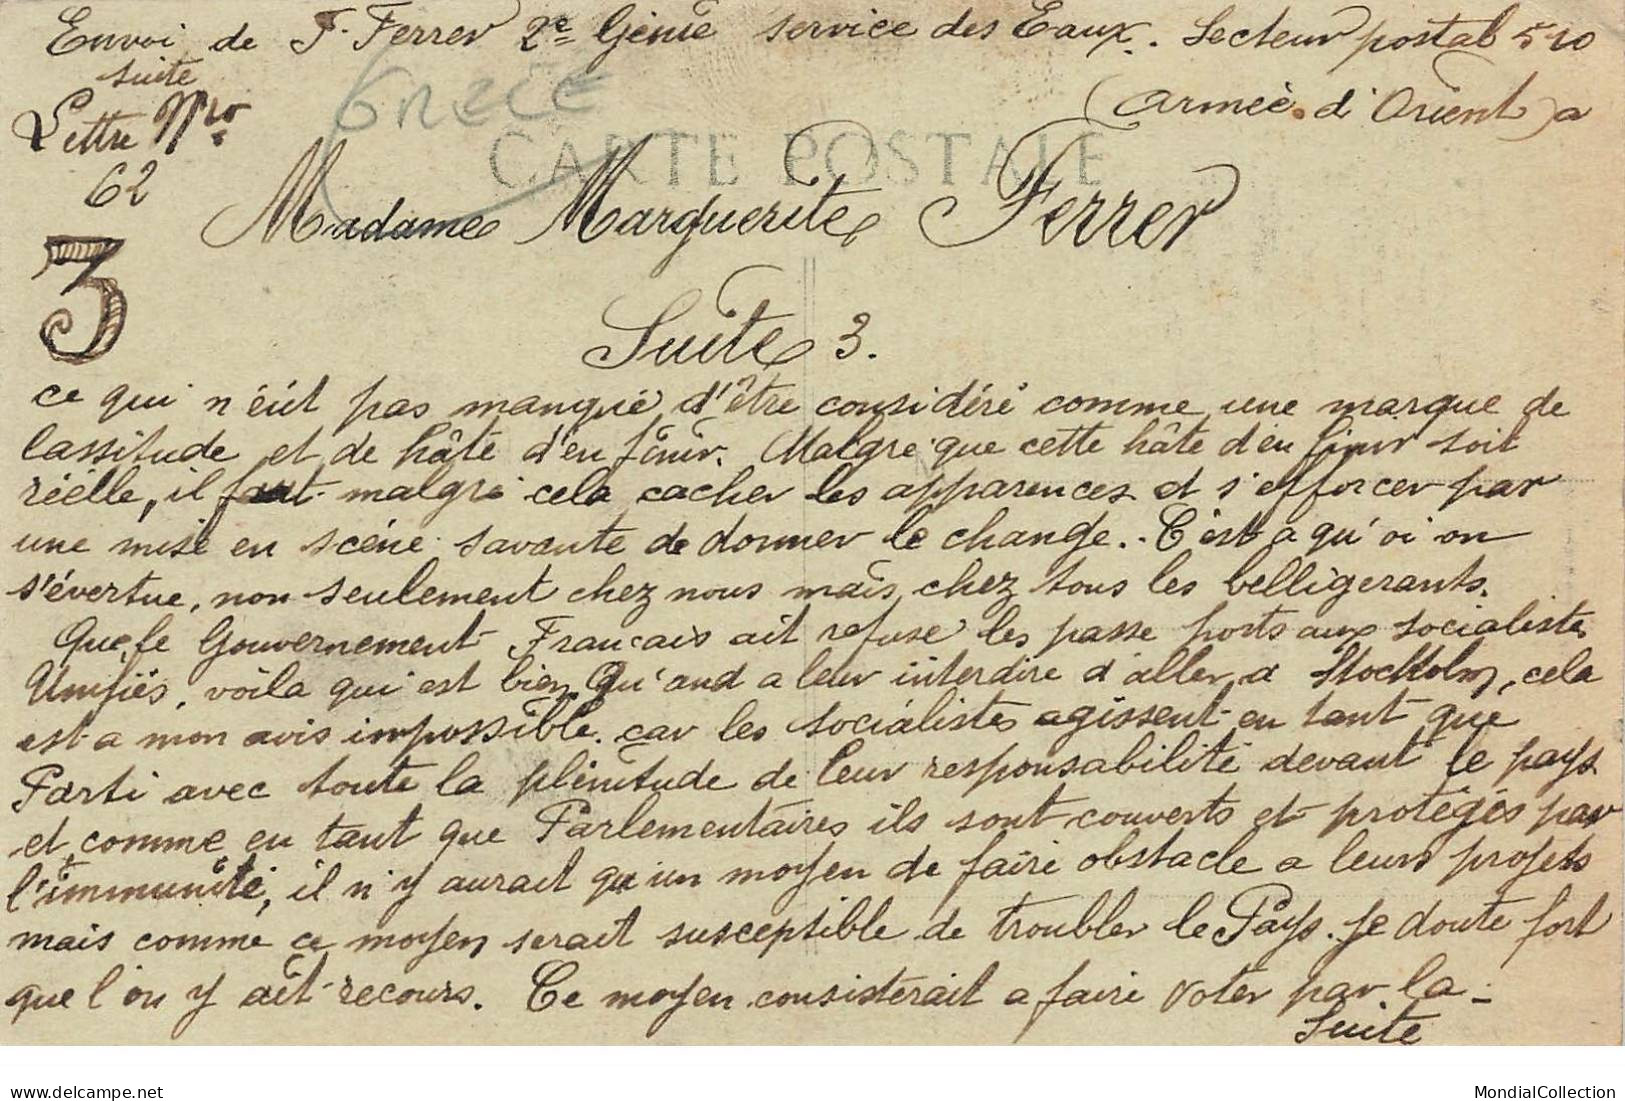 Envoi de F. Ferrer 2e Génie service des Eaux. Secteur postal 510
suite
(armée d'Orient) a
Lettre Nro
62
GRECE
CARTE POSTALE
Madame Marguerite Ferrer
3
Suite 3.
ce qui n'éut pas manqué d'être considéré comme une marque de
lassitude et de hâte d'en finir. Malgré que cette hâte d'en finir soit
réélle, il faut malgré cela cacher les apparences et s'efforcer par
une mise en scéne savante de donner le change. C'est a qu'oi on
s'évertue, non seulement chez nous mais chez tous les belligerants.
Que le Gouvernement Français ait refusé les passe ports aux socialistes
Unifiés, voila qui est bien. Qu'and a leur interdire d'aller a Stockolm, cela
est a mon avis impossible. car les socialistes agissent en tant que
Parti avec toute la plénitude de leur responsabilité devant le pays
et comme en tant que Parlementaires ils sont couverts et protégés par
l'immunité, il n'y aurait qu'un moyen de faire obstacle a leurs projets
mais comme ce moyen serait susceptible de troubler le Pays. je doute fort
que l'on y ait recours. Ce moyen consisterait a faire voter par la -
Suite
delcampe.net
MondialCollection